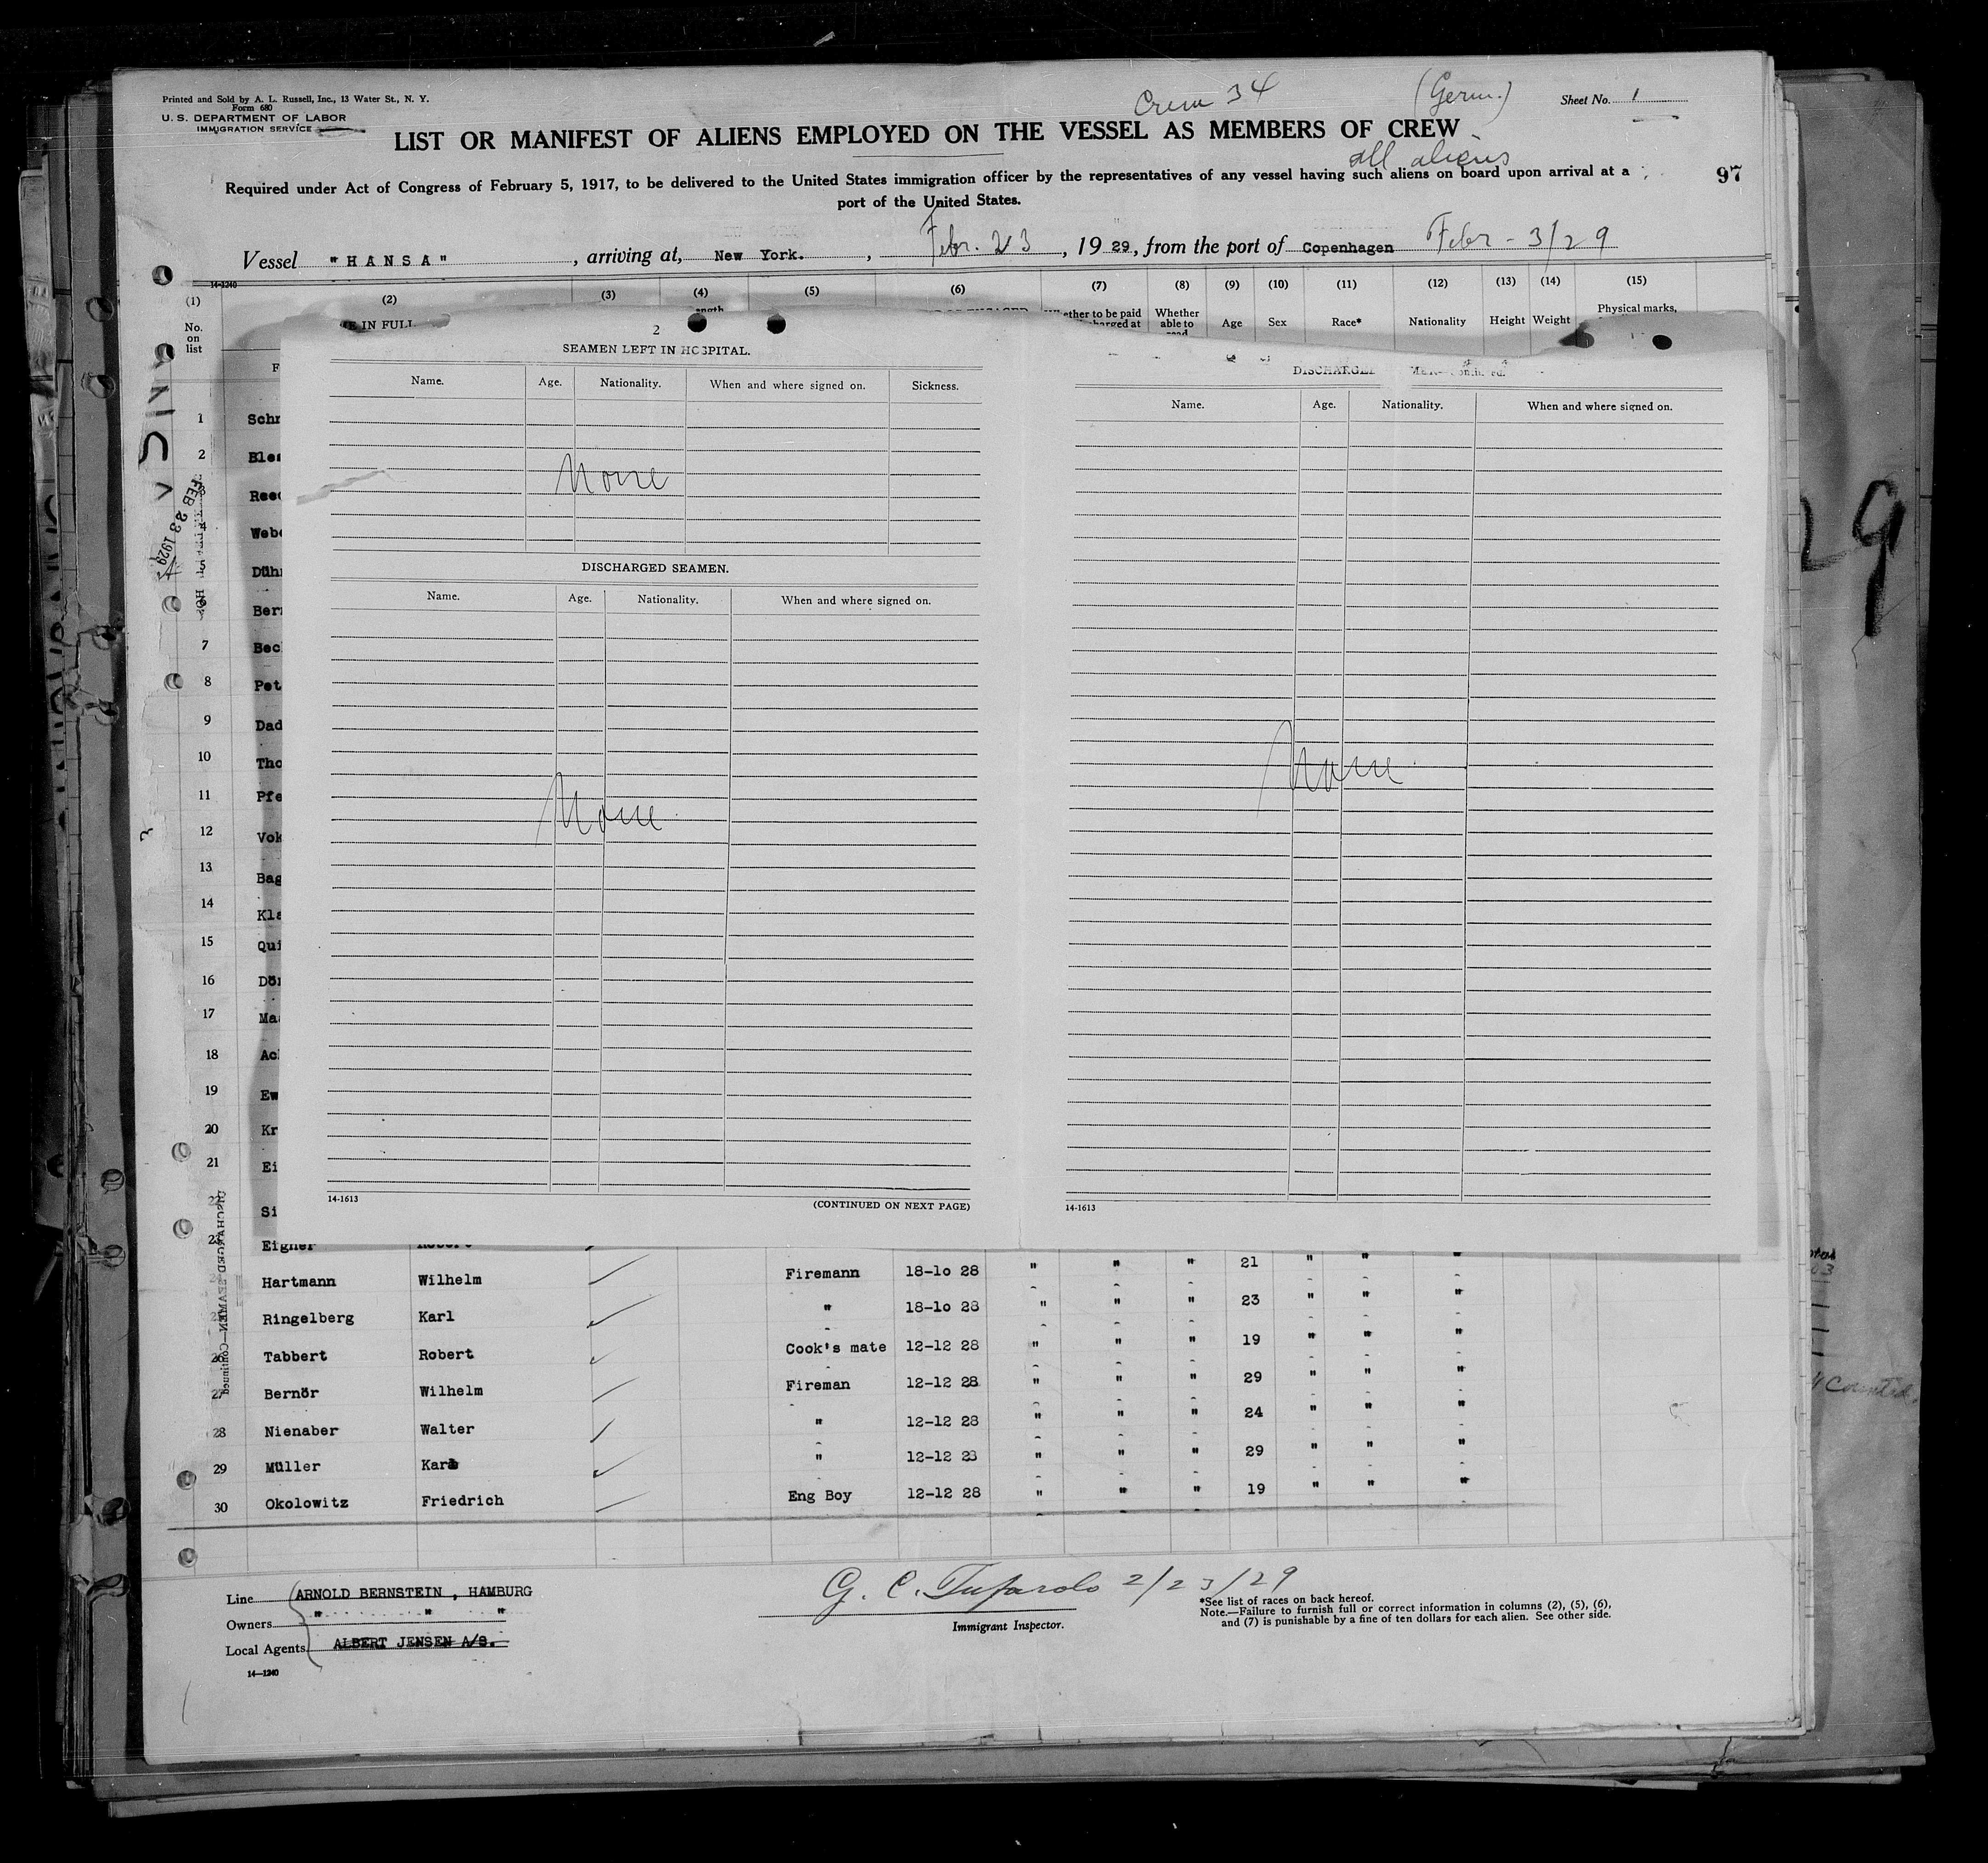 Printed and Sold by A. L. Russell, Inc., 13 Water St., N. Y.
Form 680
U. S. DEPARTMENT OF LABOR
IMMIGRATION SERVICE
Crew 34 (Germ.) Sheet No. 1
LIST OR MANIFEST OF ALIENS EMPLOYED ON THE VESSEL AS MEMBERS OF CREW
all aliens
Required under Act of Congress of February 5, 1917, to be delivered to the United States immigration officer by the representatives of any vessel having such aliens on board upon arrival at a
port of the United States.
97
Vessel "HANSA", arriving at, New York., Febr. 23, 1929, from the port of Copenhagen Febr - 3/29
14-1240
(1) (2) (3) (4) (5) (6) (7) (8) (9) (10) (11) (12) (13) (14) (15)
No. on list
E IN FULL
Whether able to
Age Sex Race* Nationality Height Weight Physical marks,
2
SEAMEN LEFT IN HOSPITAL.
Name. Age. Nationality. When and where signed on. Sickness.
None
DISCHARGED SEAMEN.
Name. Age. Nationality. When and where signed on.
None
14-1613
(CONTINUED ON NEXT PAGE)
Name. Age. Nationality. When and where signed on.
None
14-1613
FEB 23 1929
DISCHARGED SEAMEN—Continued
1 Schn
2 Bles
3 Reed
4 Webe
5 Dühr
6 Bern
7 Bec
8 Pet
9 Dad
10 Tho
11 Pfe
12 Vok
13 Bag
14 Kla
15 Qui
16 Dör
17 Ma
18 Ac
19 Ew
20 Kr
21 Ei
22 Si
23 Eigner Robert
Hartmann Wilhelm Firemann 18-10 28 " " " 21 " " "
Ringelberg Karl " 18-10 28 " " " 23 " " "
26 Tabbert Robert Cook's mate 12-12 28 " " " 19 " " "
27 Bernör Wilhelm Fireman 12-12 28 " " " 29 " " "
28 Nienaber Walter " 12-12 28 " " " 24 " " "
29 Müller Karl " 12-12 28 " " " 29 " " "
30 Okolowitz Friedrich Eng Boy 12-12 28 " " " 19 " " "
Line ARNOLD BERNSTEIN, HAMBURG
Owners " " "
Local Agents ALBERT JENSEN A/S.
14—1240
G. C. Tufarolo 2/23/29
Immigrant Inspector.
*See list of races on back hereof.
Note.—Failure to furnish full or correct information in columns (2), (5), (6),
and (7) is punishable by a fine of ten dollars for each alien. See other side.